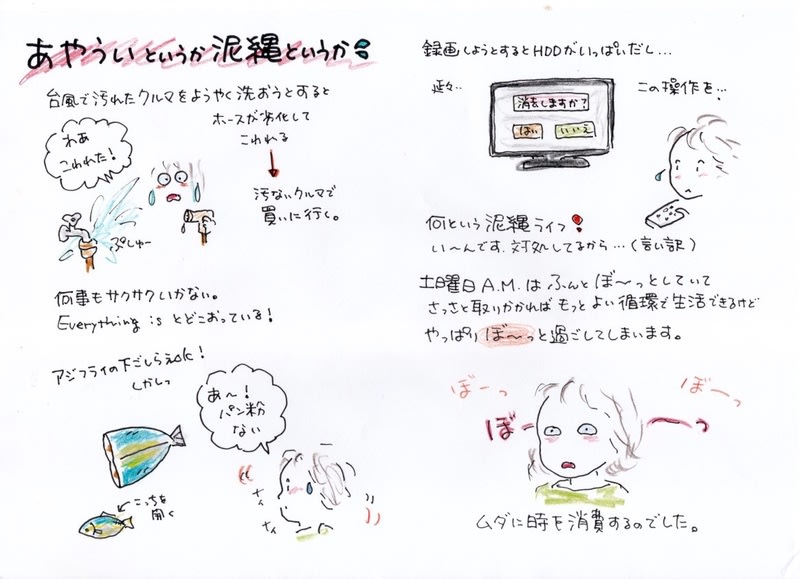 あやういというか泥縄というか
台風で汚れたクルマをようやく洗おうとすると
ホースが劣化して
こわれる
わあ
こわれた!
ぷしゅー
汚ないクルマで
買いに行く。
何事もサクサクいかない。
Everything is とどこおっている!
アジフライの下ごしらえok!
しかしっ
あ〜!
パン粉
ない
こっちを
開く
ナイ
ナイ
録画しようとするとHDDがいっぱいだし…
延々…
消去しますか?
はい
いいえ
この操作を…
何という泥縄ライフ!
い〜んです、対処してるから…(言い訳)
土曜日A.M.はふんとぼ〜っとしていて
さっさと取りかかればもっとよい循環で生活できるけど
やっぱりぼ〜っと過ごしてしまいます。
ぼーっ
ぼーっ
ぼーーっ
ムダに時を消費するのでした。